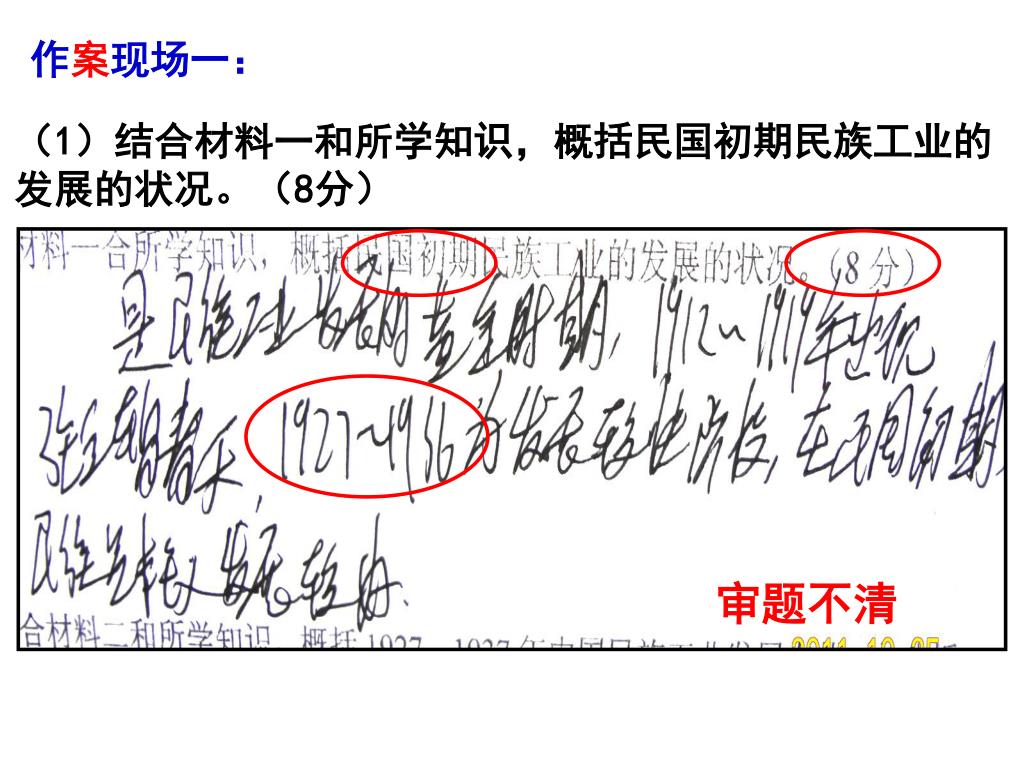 作案现场一：
（1）结合材料一和所学知识，概括民国初期民族工业的
发展的状况。（8分）
材料一合所学知识，概括民国初期民族工业的发展的状况。（8分）
是民族工业发展的黄金时期，1912～1919年出现
短暂春天，1927～1936为发展较快阶段，在民国初期，
民族资本主义发展较快．
审题不清
合材料二和所学知识，概括1927—1937年中国民族工业发展